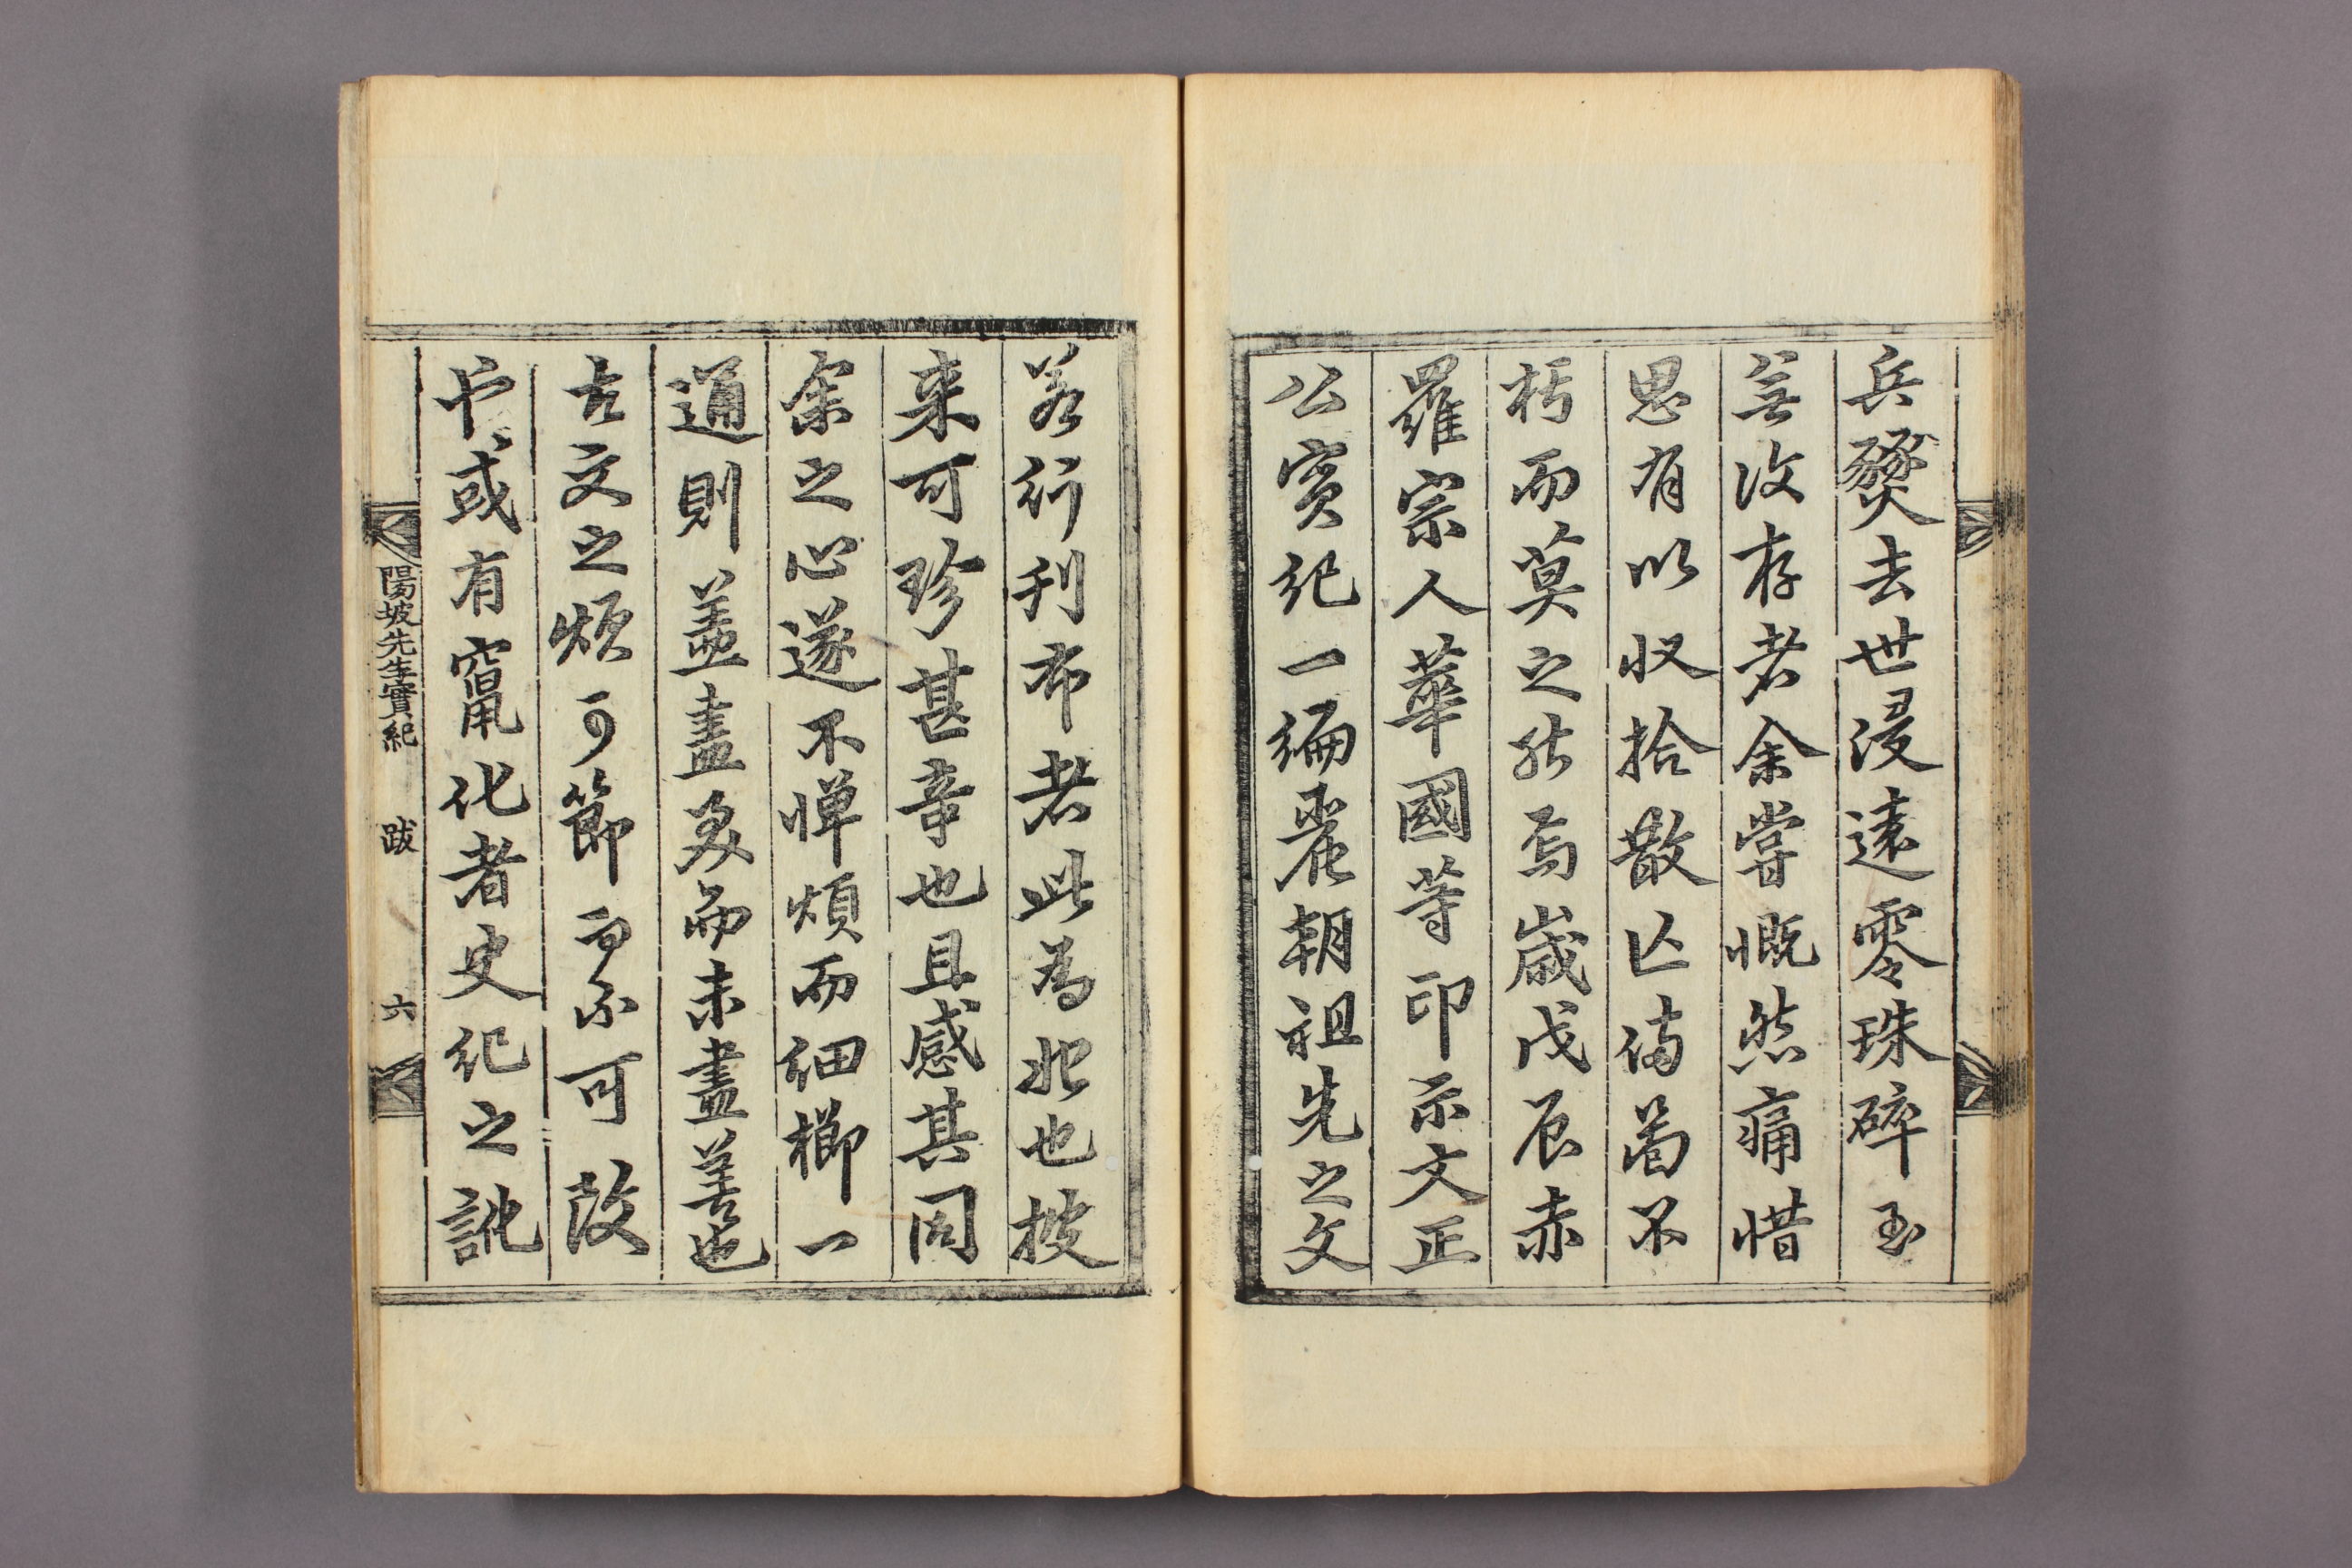 兵燹去世浸遠零珠碎玉
無攸存者余嘗慨然痛惜
思有以收拾散亡俻萬不
朽而莫之能焉歲戊辰赤
羅宗人華國等印示文正
公實紀一編麗朝祖先之文
若行刊布者此為始也披
來可珍甚幸也且感其同
余之心遂不憚煩而細櫛一
通則盖盡美而未盡善也
古文之煩可節而不可改
也或有竄化者史紀之訛
陽坡先生實紀 跋 六